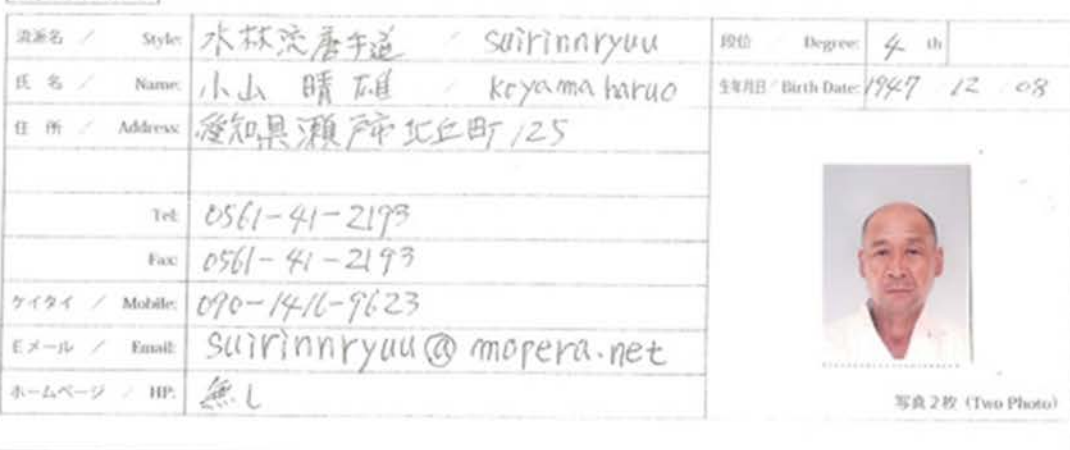 流派名 / Style: 水林流唐手道 / suirinnryuu
段位 / Degree: 4 th
氏 名 / Name: 小山 晴雄 / koyama haruo
生年月日 / Birth Date: 1947 12 08
住 所 / Address: 愛知県瀬戸市北丘町125
Tel: 0561-41-2193
Fax: 0561-41-2193
ケイタイ / Mobile: 090-1416-9623
Eメール / Email: suirinnryuu@mopera.net
ホームページ / HP: 無し
写真2枚 (Two Photo)